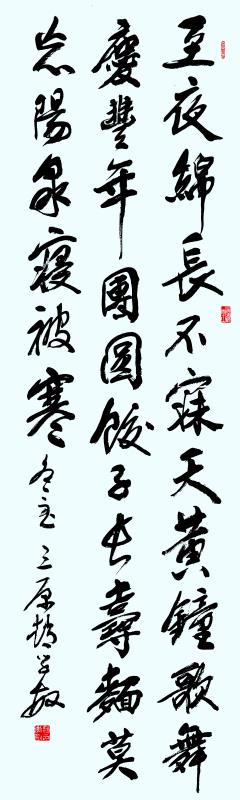 至夜綿長不寐天黃鐘歌舞
慶豐年團圓餃子長壽麵莫
忘陽泉寢被寒 冬至 三原